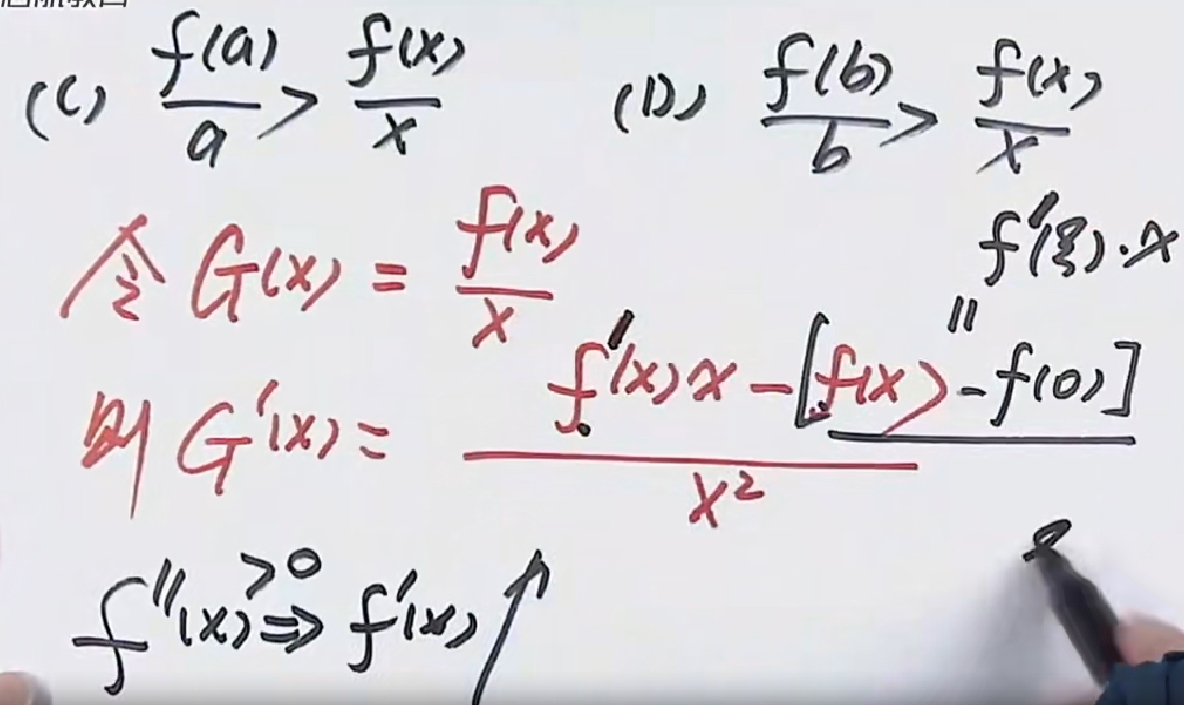 (C) f(a)/a > f(x)/x (D) f(b)/b > f(x)/x
令 G(x) = f(x)/x
f'(ξ)·x
"
则 G'(x) = f'(x)x - [f(x) - f(0)] / x²
f''(x) > 0 ⇒ f'(x) ↑